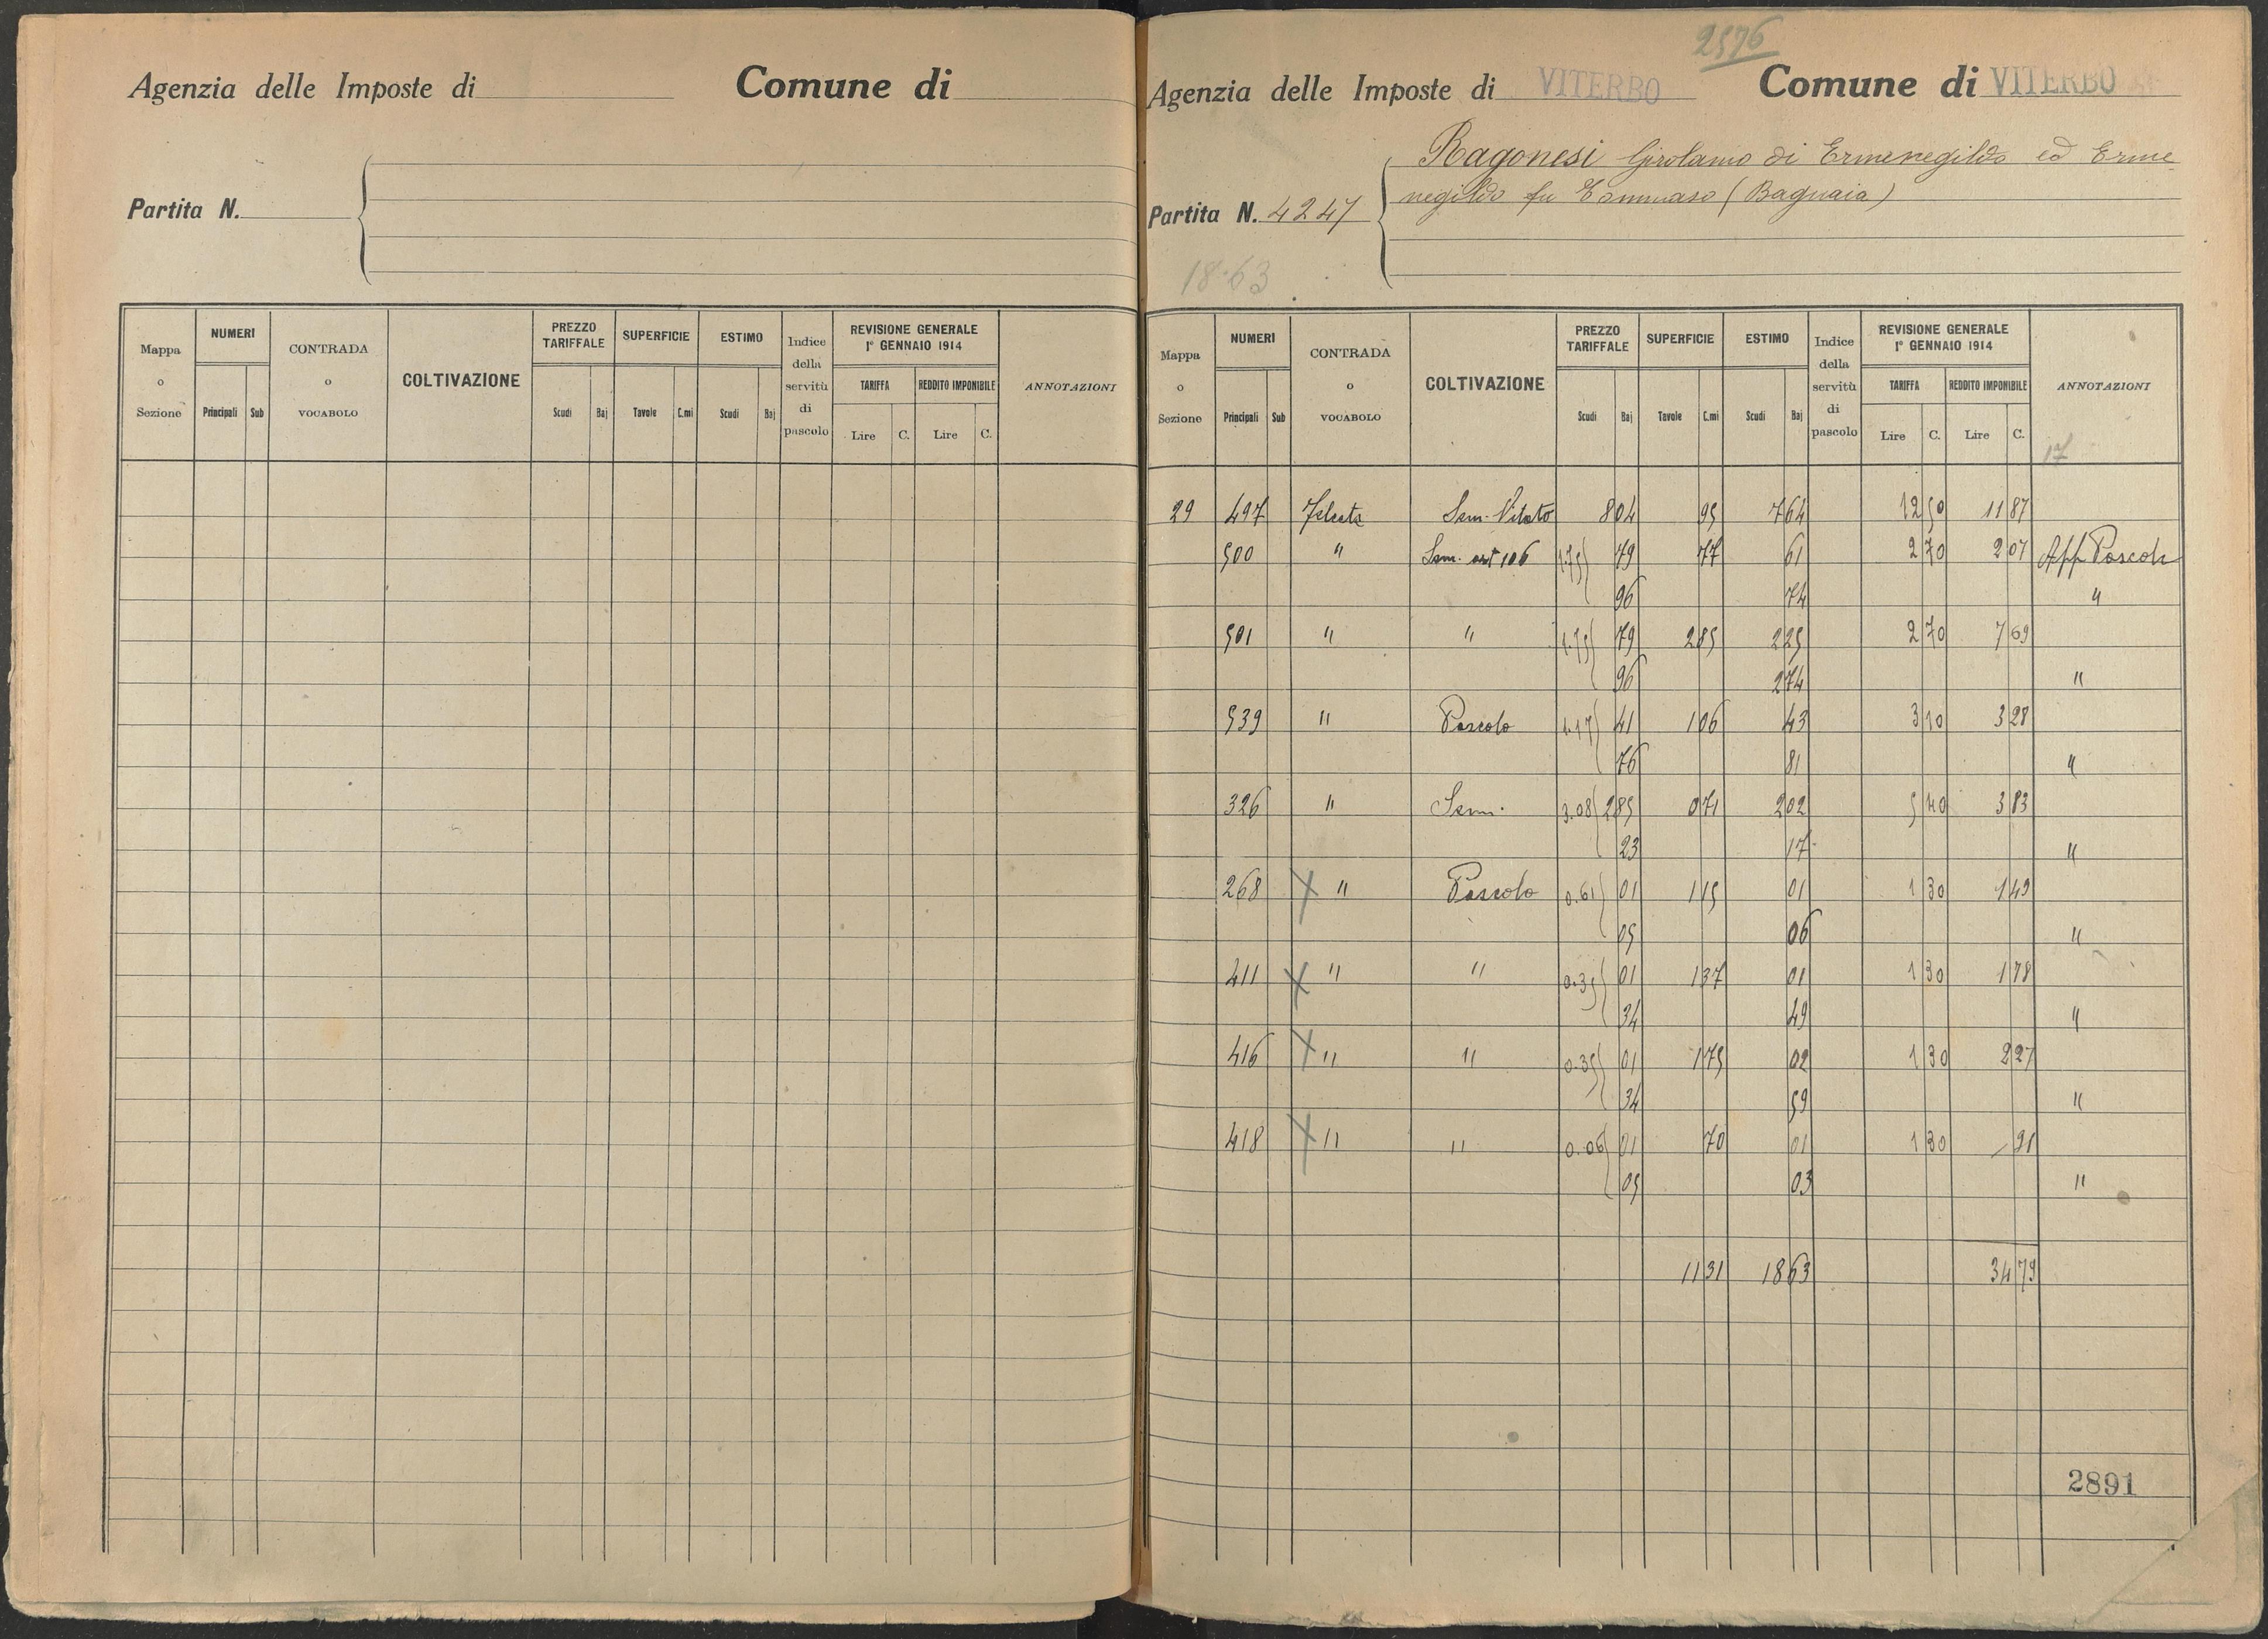 Agenzia delle Imposte di Comune di
Partita N.
Mappa o Sezione NUMERI Principali Sub CONTRADA o VOCABOLO COLTIVAZIONE PREZZO TARIFFALE Scudi Baj SUPERFICIE Tavole C.mi ESTIMO Scudi Baj Indice della servitù di pascolo REVISIONE GENERALE 1° GENNAIO 1914 TARIFFA Lire C. REDDITO IMPONIBILE Lire C. ANNOTAZIONI
2576
Agenzia delle Imposte di VITERBO Comune di VITERBO
Ragonesi Girolamo di Ermenegildo ed Erme
negildo fu Tommaso (Bagnaia)
Partita N. 4247
18.63
Mappa o Sezione NUMERI Principali Sub CONTRADA o VOCABOLO COLTIVAZIONE PREZZO TARIFFALE Scudi Baj SUPERFICIE Tavole C.mi ESTIMO Scudi Baj Indice della servitù di pascolo REVISIONE GENERALE 1° GENNAIO 1914 TARIFFA Lire C. REDDITO IMPONIBILE Lire C. ANNOTAZIONI
17
29 497 Sem. Vitato 8 04 95 7 64 12 50 11 87
500 " Sem. art 106 1.75 79 77 61 2 70 2 07 App Pascoli
96 74 "
501 " " 1.75 79 2 85 2 25 2 70 7 69
96 2 74 "
539 " Pascolo 1.17 41 1 06 43 3 10 3 28
76 81 "
326 " Sem. 3.08 2 85 0 71 2 02 5 40 3 83
23 17 "
268 X " Pascolo 0.61 01 1 15 01 1 30 1 49
05 06 "
411 X " " 0.35 01 1 37 01 1 30 1 78
34 49 "
416 X " " 0.35 01 1 75 02 1 30 2 27
34 59 "
418 X " " 0.06 01 70 01 1 30 - 91
05 03 "
11 31 18 63 34 79
2891